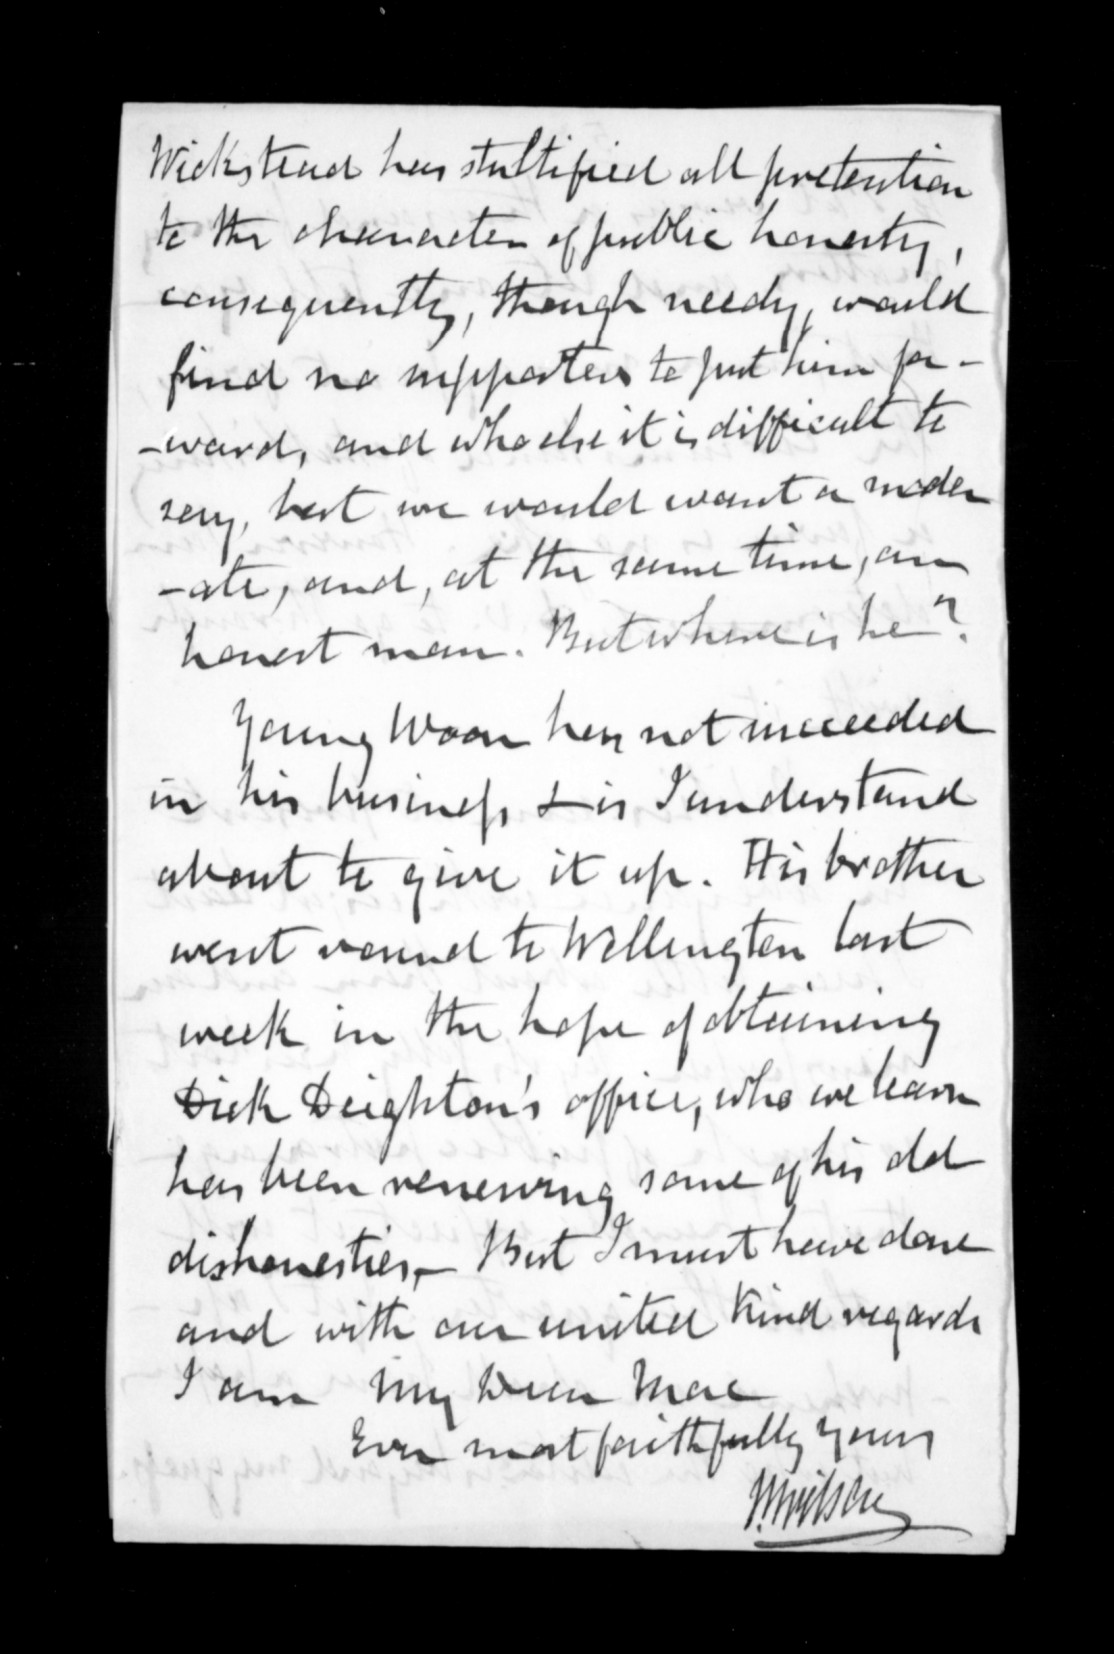 Wickstead has stultified all pretention
to the character of public honesty,
consequently, though needy, would
find no supporters to put him for-
-ward, and who else it is difficult to
say, but we would want a moder
-ate, and, at the same time, an
honest man. But where is he?
Young Woon has not succeeded
in his business & is I understand
about to give it up. His brother
went round to Wellington last
week in the hope of obtaining
Dick Deighton's office, who we learn
has been renewing some of his old
dishonesties,— But I must have done
and with our united kind regards
I am My Dear Mac
Ever most faithfully yours